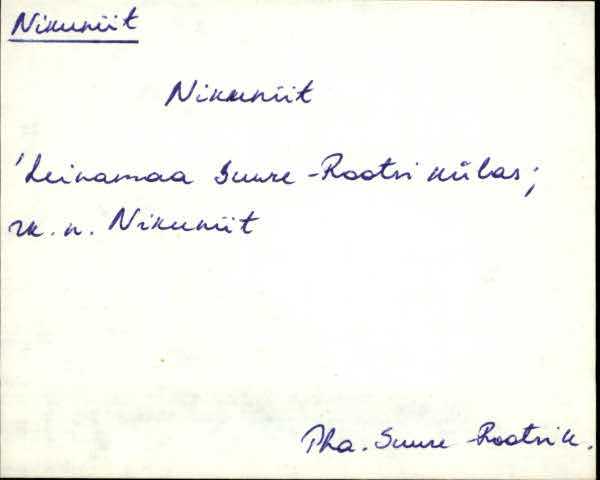 Nikuniit
Nikuniit
'heinamaa Suure-Rootsi külas;
rk. n. Nikuniit
Pha. Suure-Rootsi k.